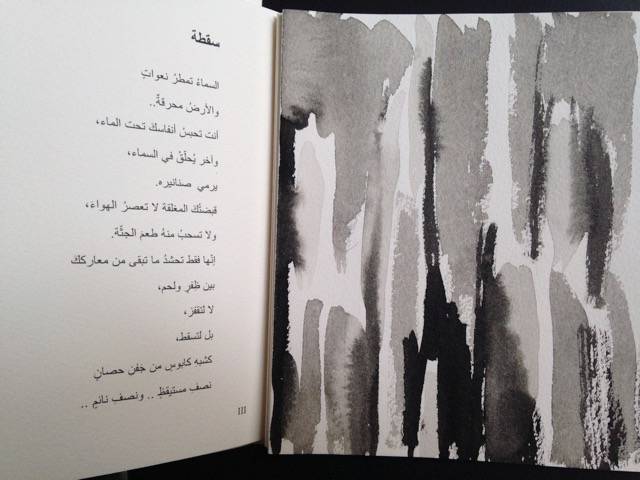 سقطة
السماءُ تمطرُ نعواتٍ
والأرضُ محرقةٌ..
أنت تحبسُ أنفاسكَ تحت الماء،
وآخر يُحلّقُ في السماء،
يرمي صنانيره.
قبضتُكَ المغلقة لا تعصرُ الهواءَ،
ولا تسحبُ منهُ طعمَ الجثّة.
إنّها فقط تحشدُ ما تبقى من معاركك
بين ظفرٍ ولحم،
لا لتقفز،
بل لتسقط،
كشبهِ كابوسٍ من جَفن حصانٍ
نصفِ مستيقظٍ .. ونصفِ نائمٍ ..
III